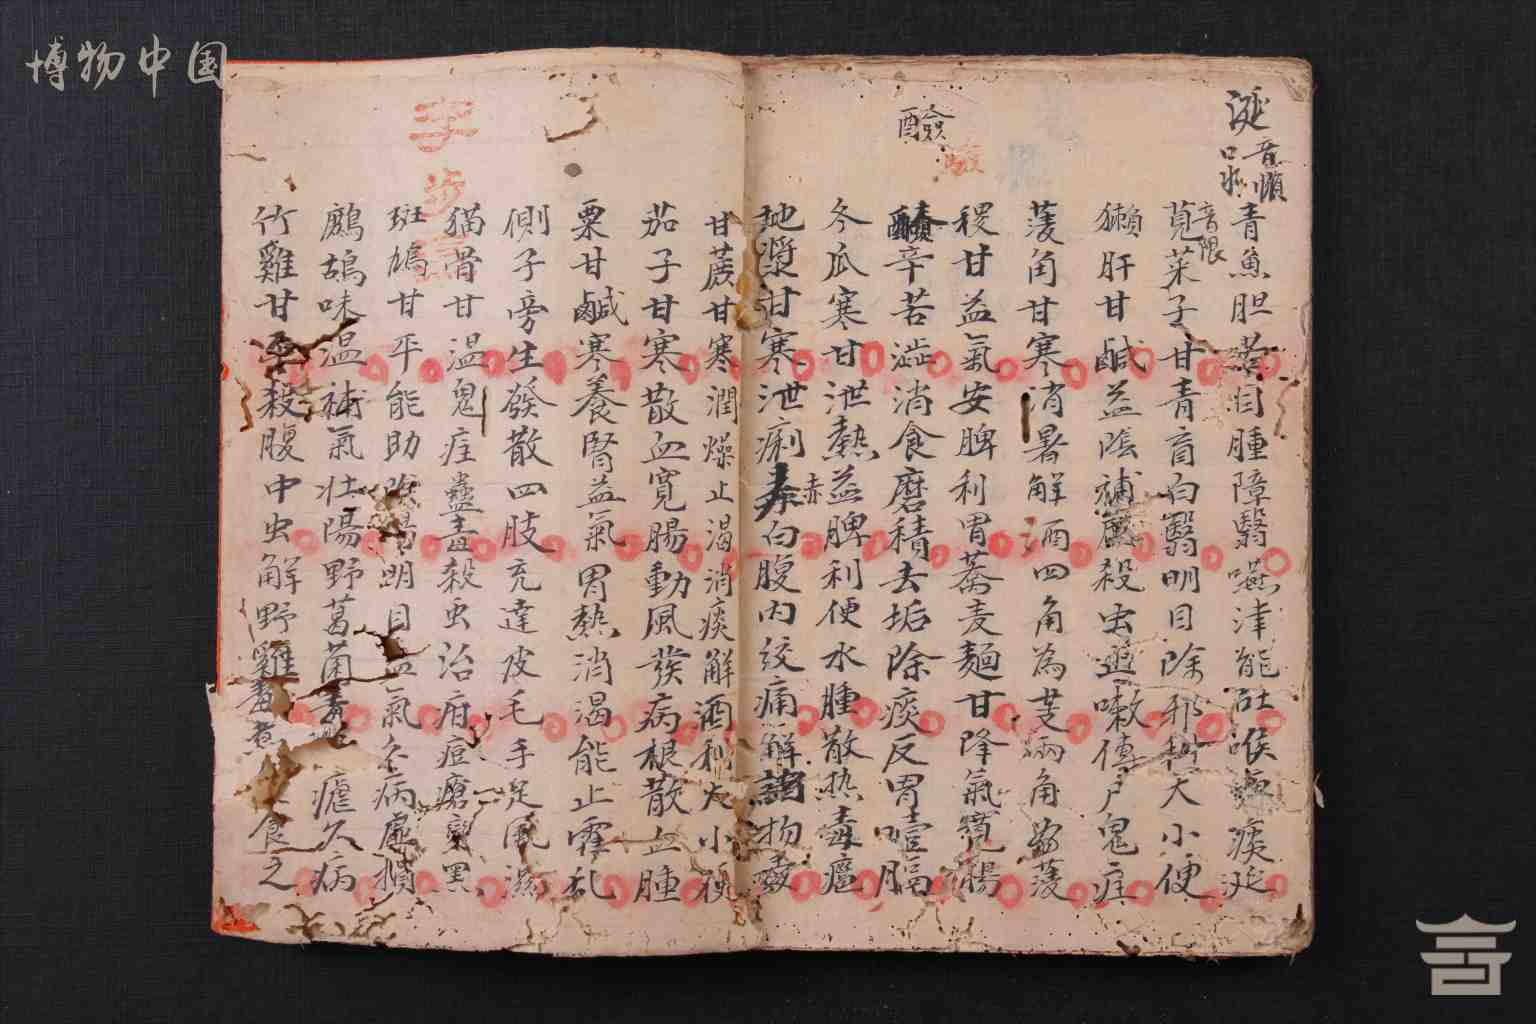 博物中国
涎
音懶
口水
青魚胆 目腫障翳嚥津能吐喉 痰涎
莧菜子甘青盲白翳明目除邪 大小便
音限
獺肝甘鹹益陰補 殺虫逆嗽傳尸鬼疰
菱角甘寒消暑解酒四角為芰兩角為菱
稷甘益氣安脾利胃蕎麦麺甘降氣寬腸
醶
辛苦澁消食磨積去垢除痰反胃噎膈
冬瓜寒甘泄熱益脾利便水腫散热毒瘟
地漿甘寒泄痢赤白腹内絞痛解諸物毒
甘蔗甘寒潤燥止渴消痰解酒利大小便
茄子甘寒散血寛腸動風發病根散血腫
栗甘鹹寒養腎益氣胃熱消渴能止霍乱
側子旁生發散四肢充達皮毛手足風濕
猫骨甘温鬼疰蠱毒殺虫治疳痘瘡 黒
斑鳩甘平能助陰陽明目益氣久病虛損
鷓鴣味温補氣壯陽野葛菌毒 瘧久病
竹雞甘平殺腹中虫解野雞毒煮 食之
李步